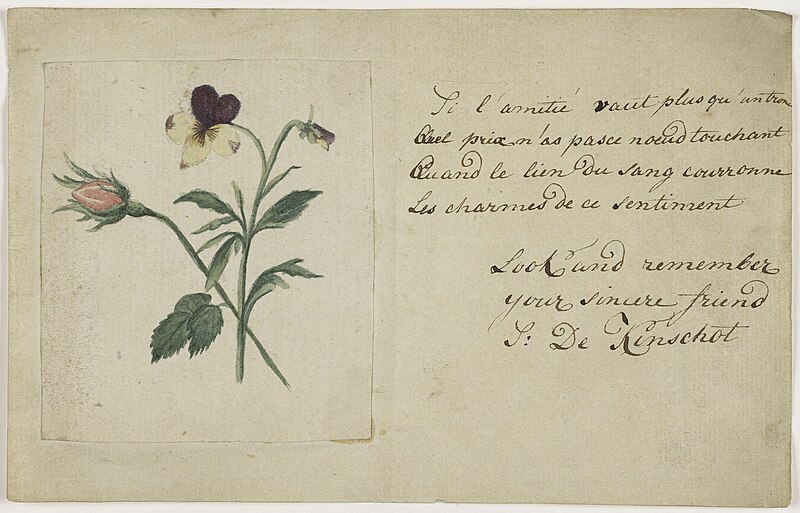 Si l'amitié vaut plus qu'un trone
Quel prix n'as pas ce noeud touchant
Quand le lien du sang courronne
Les charmes de ce sentiment
Look and remember
your sincere friend
S: De Kinschot